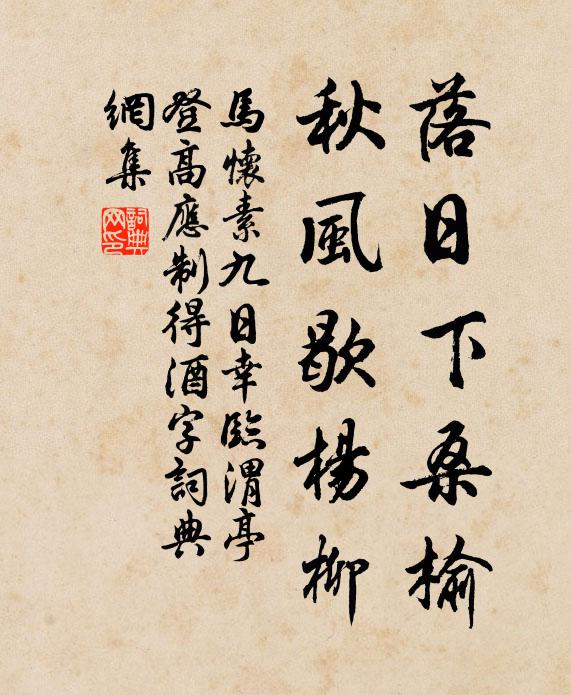 落日下桑榆
秋風歇楊柳
馬懷素九日幸臨渭亭
登高應制得酒字詞典
網集
詞典网印